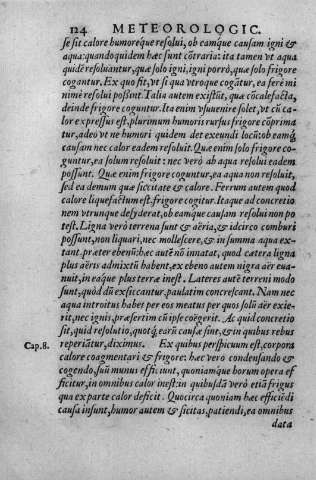 124 METEOROLOGIC.
se sit calore humoreque resolui, ob eamque causam igni &
aqua: quando quidem hæc sunt cōtraria: ita tamen vt aqua
quidē resoluantur, quæ solo igni, igni porrò, quæ solo frigore
cogantur. Ex quo fit, vt si qua vtroque cogātur, ea ferè mi
nimè resolui possint. Talia autem existūt, quæ cōcalefacta,
deinde frigore coguntur. Ita enim vsuuenire solet, vt cū ca
lor expressus est, plurimum humoris rursus frigore cōprima
tur, adeò vt ne humori quidem det exeundi locū: ob eamq́
causam nec calor eadem resoluit. Quæ enim solo frigore co
guntur, ea solum resoluit: nec verò ab aqua resolui eadem
possunt. Quæ enim frigore coguntur, ea aqua non resoluit,
sed ea demum quæ siccitate & calore. Ferrum autem quod
calore liquefactum est, frigore cogitur. Itaque ad concretio
nem vtrunque desyderat, ob eamque causam resolui non po
test. Ligna verò terrena sunt & aëria, & idcirco comburi
possunt, non liquari, nec mollescere, & in summa aqua ex-
tant, præter ebenū: hæc autē nō innatat, quod cætera ligna
plus aëris admixtū habent, ex ebeno autem nigra aër eua-
nuit, in eaq́ue plus terræ inest. Lateres autē terreni modo
sunt, quòd dū exsiccantur, paulatim concrescant. Nam nec
aqua introitus habet per eos meatus per quos solū aër exie-
rit, nec ignis, præsertim cū ipse coëgerit. Ac quid concretio
sit, quid resolutio, quotq́ earū causæ sint, & in quibus rebus
Cap.8. reperiātur, diximus. Ex quibus perspicuum est, corpora
calore coagmentari & frigore: hæc verò condensando &
cogendo, suū munus efficiunt, quoniamque horum opera ef
ficitur, in omnibus calor inest: in quibusdā verò etiā frigus
qua ex parte calor deficit. Quocirca quoniam hæc efficiēdi
causa insunt, humor autem & siccitas, patiendi, ea omnibus
data